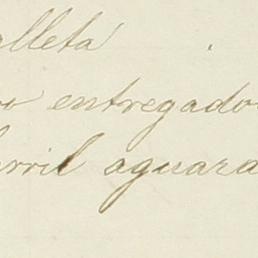 alleta
o entregado
arril aguara